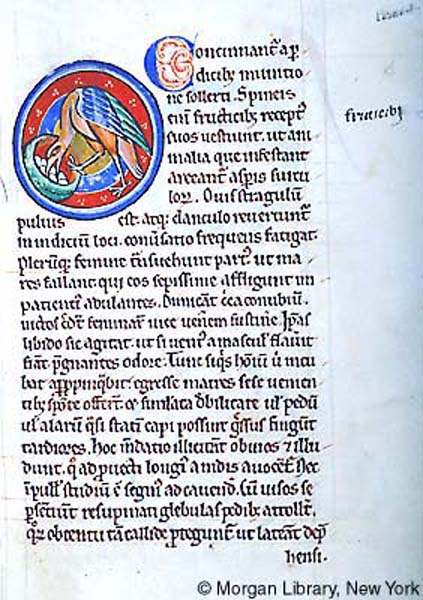 Concinnant̄ aꝑ
dicib; munitio
ne sollerti. Spineis
eni fructicib; recept᷒
suos uestiunt. ut ani
malia que infestant
arceant̄ aspis surcu
loꝝ. Ouis stragulū
puluis est. atq; clanculo reuertunt̄
in indiciū loci. conūsatio frequens fatigat.
Pleruq; femine tͣsuehunt part᷒ ut ma
res fallant. qui eos sepissime affligunt in
patienti᷒ adulantes. Dimicant c̄ca conubiū.
uictos c̄dt̄ feminaꝝ uice uen̄em sustine. Ipas
libido sic agitat. ut si uent᷒ a masculis flau̅it
fiant p̄gnantes odore. Tunc siq̇s hoiūm ū incu
bat appinq̇bit. egresse matres sese uenien
tib; spōte offer̄t. et simlata debilitate ul̄ pedū
ul̄ alarū q̄si stati capi possint g̊ssus fingūt
tardiores. Hoc m̄datio illicitant obuios et illu
dunt. q̊ ad puecti longi᷒ a nidis auocent̄. Nec
in pull̄ studiū ē segni᷒ ad cauend̄. Cū uisos se
ꝑsentiūt resupinati glebulas pedib; attollt̄.
q̊ꝝ obtentu tā callide ꝓtegunt̄ ut lateāt dep̄
hensi.
© Morgan Library, New York